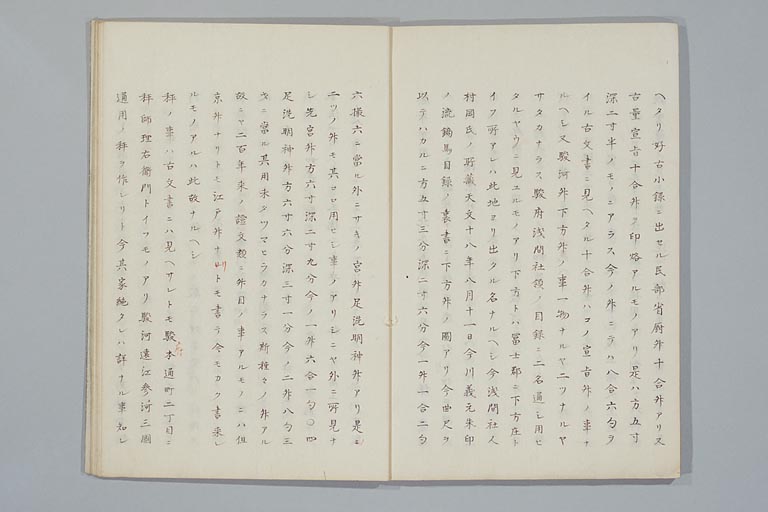 ヘタリ好古小録ニ出セル民部省厨舛十合舛アリス
古量宣旨十合舛ヌ印烙アルモノアリ是ハ方五寸
深二寸半ノモノニアラス今ノ舛ニテハ八合六勺ヲ
イル古文書ニ見ヘタル十合舛ハコノ宣旨舛ノ事ナ
ルヘシ又駿河舛下方舛ノ事一物ナルヤ二ツナルヤ
サタカナラス駿府浅間社領ノ目録ニ二名通シ用ヒ
タルヤウニ見ユルモノアリ下方トハ富士郡ニ下方庄ト
イフ所アレハ此地ヨリ出タル名ナルヘシ今浅間社人
村岡氏ノ所蔵天文十八年八月十一日今川義元朱印
ノ流鏑馬目録ノ裏書ニ下方舛ノ圖アリ今曲尺ヲ
以テハカルニ方五寸三分深二寸六分今一舛一合二勺
六撮六ニ當ル外ニすきノ宮舛足洗明神舛アリ是ニ
二ツノ舛モ其コロ用ヒシ事ノアリシニヤ外ニ所見ナ
シ先宮舛方六寸深二寸九分今ノ一舛六合一勺〇四
足洗明神舛方六寸六分深三寸一分今ノ二舛八勺三
才ニ當ル其用未タツマヒラカナラス斯種々ノ舛アル
故ニヤ二百年来ノ證文類ニ舛目ノ事アルモノニハ但
京舛ナリトモ江戸舛ナリトモ書テ今モカク書来レ
ルモノアルハ此故ナルヘシ
秤ノ事ハ古文書ニハ見ヘサレトモ駿府本通町二丁目ニ
秤師理右衛門トイフモノアリ駿河遠江参河三國
通用ノ秤ヲ作レリト今其家絶タレハ詳ナル事知レ